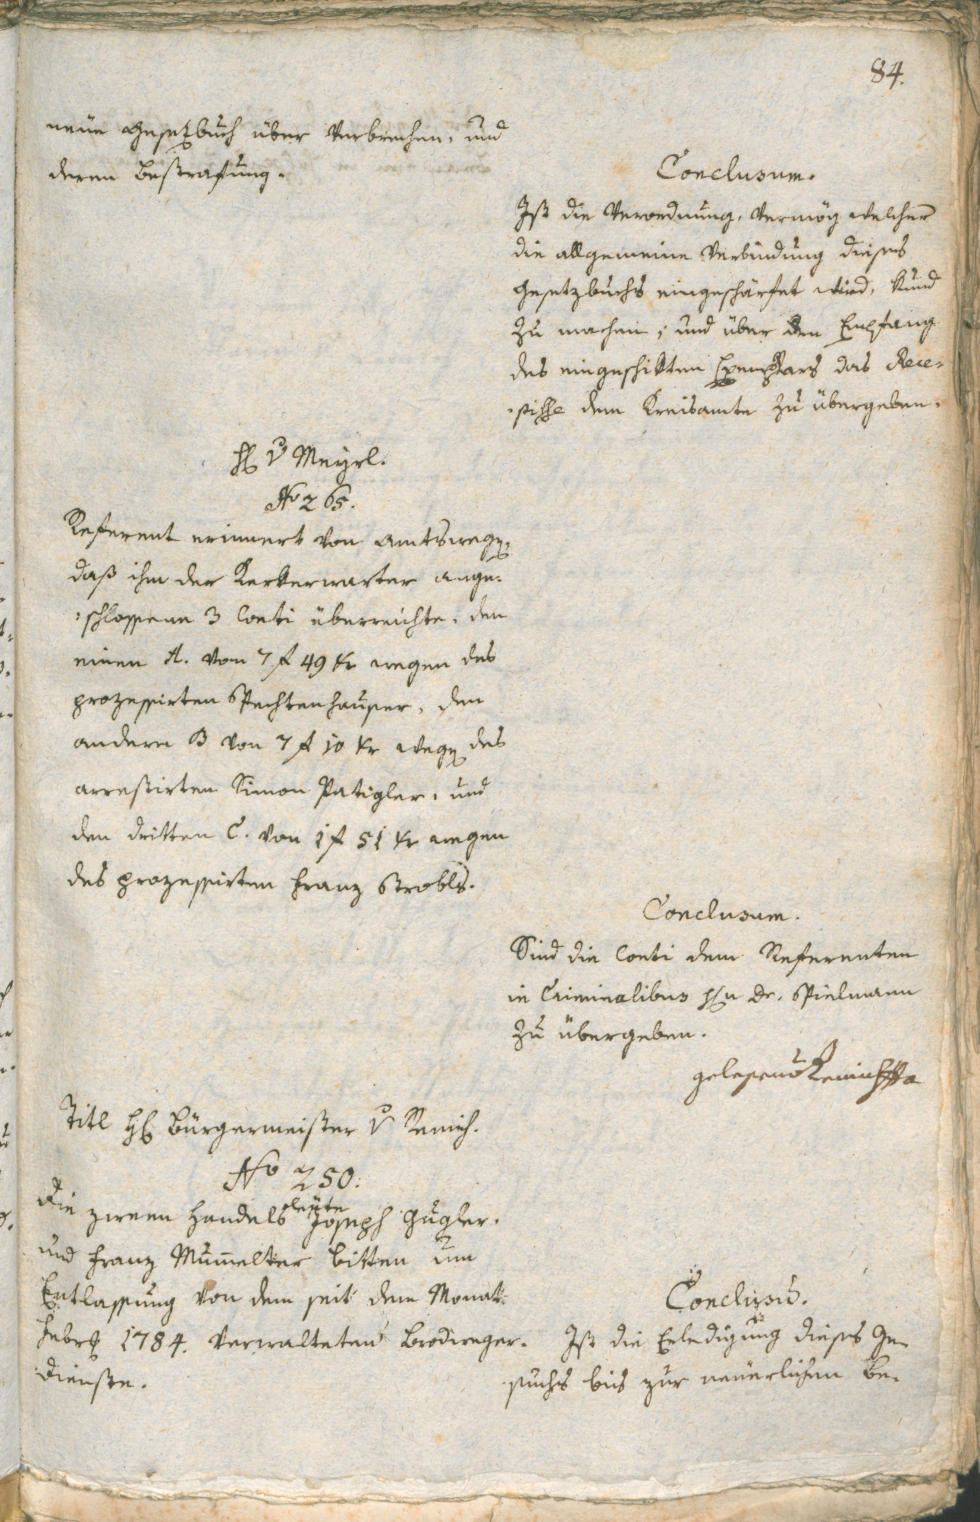 84.
neüe Gesetzbuch über Verbrechen, und
deren Bestrafung.
Conclusum.
Ist die Verordnung, vermög welcher
die allgemeine Verbindung dieses
Gesetzbuchs eingeschärfet wird, kund
zu machen, und über den Empfang
des eingeschikten Exemplars das Rece-
-pisse dem Kreisamte zu übergeben.
H v Meyrl.
No 265.
Referent erinnert von Amtsweg,
daß ihm der Kerkerwarter ange-
-schlossene 3 Conti überreichte, den
einen A. vom 7 f 49 kr wegen des
prozessirten Pechtenhauser, den
andern B von 7 f 10 kr weg des
arrestirten Simon Patigler, und
den dritten C. von 1 f 51 kr wegen
des prozessirten Franz Strobls.
Conclusum.
Sind die Conti dem Referenten
in Criminalibus H Dr. Spielmann
zu übergeben.
gelesen
Titl H Bürgermeister v Remich.
No 250.
Die zween Handelsleute Joseph Gugler,
und Franz Mumelter bitten um
Entlassung von dem seit dem Monat
Febr 1784. verwalteten Brodweger-
dienste.
Conclusū.
Ist die Erledigung dieses Ge-
suchs bis zur neuerlichen Be-